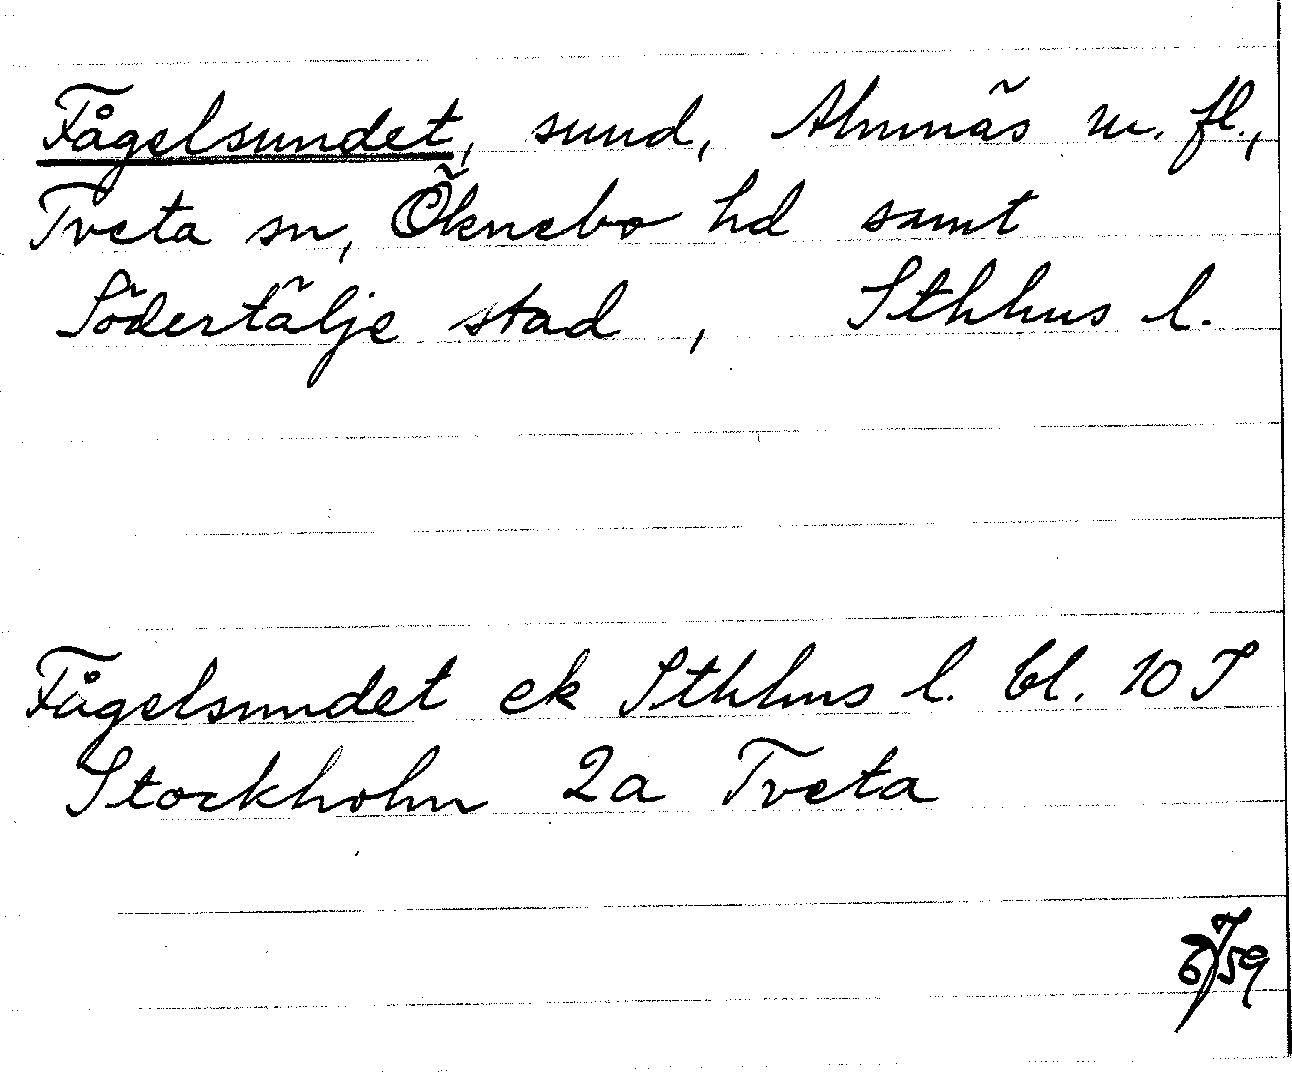 Fågelsundet, sund, Almnäs m. fl.,
Tveta sn, Öknebo hd samt
Södertälje stad, Sthlms l.
Fågelsundet ek Sthlms l. bl. 10 I
Stockholm 2a Tveta